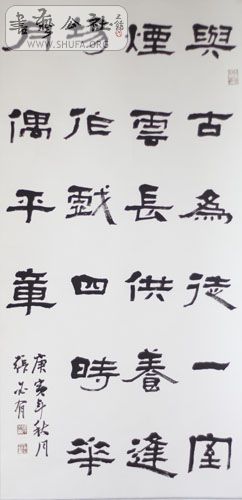 與古為徒一室
煙雲長供養逢
場作戲四時花
月偶平章
庚寅年秋月
張必有
公社
WWW.SHUFA.ORG